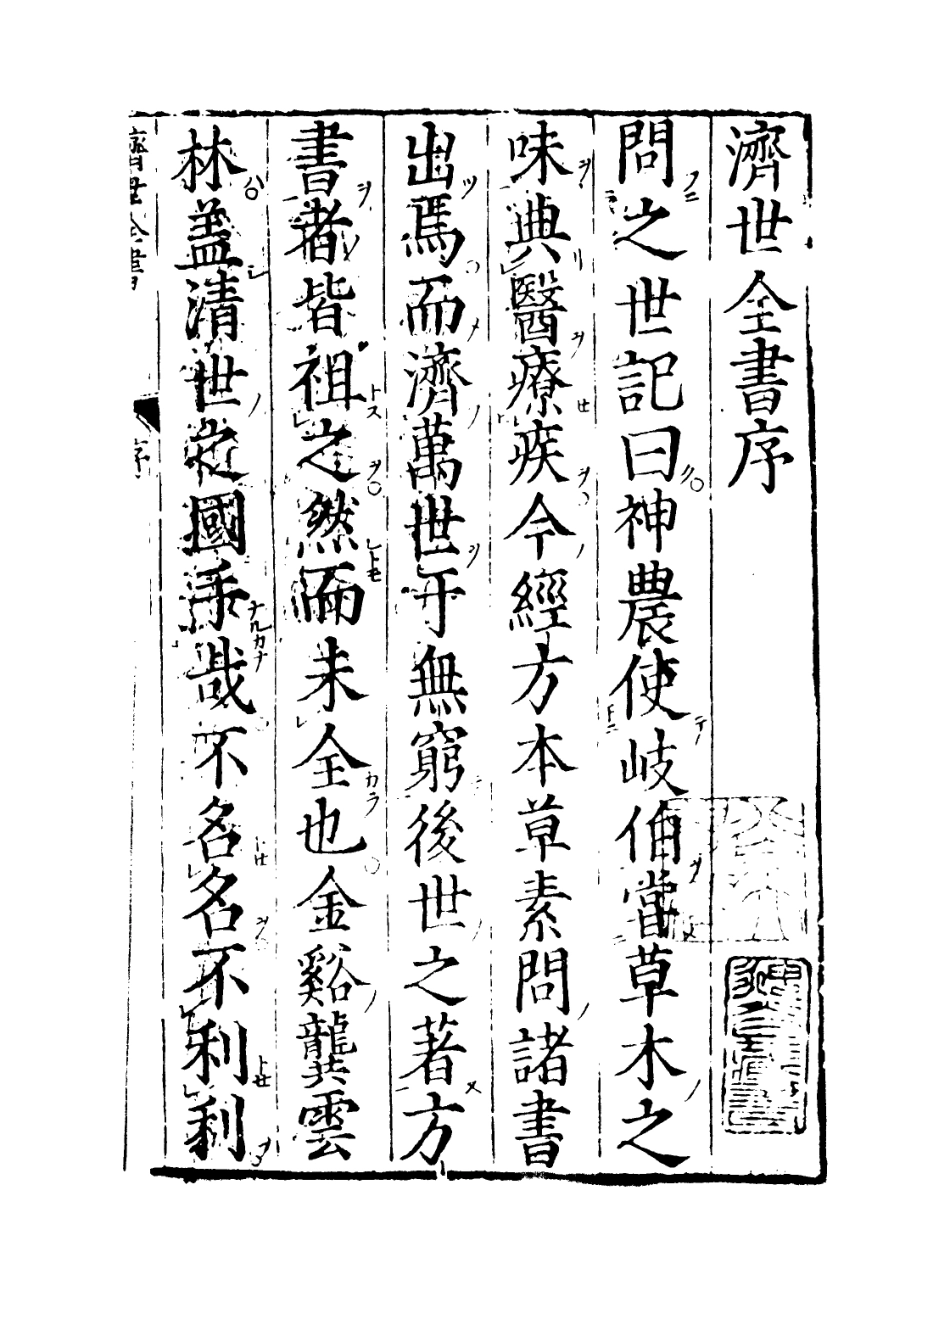 濟世全書序
問之世記曰神農使岐伯嘗草木之
味典醫療疾今經方本草素問諸書
出焉而濟萬世于無窮後世之著方
書者皆祖之然而未全也金谿龔雲
林蓋清世之國手哉不名名不利利
濟世全書
序